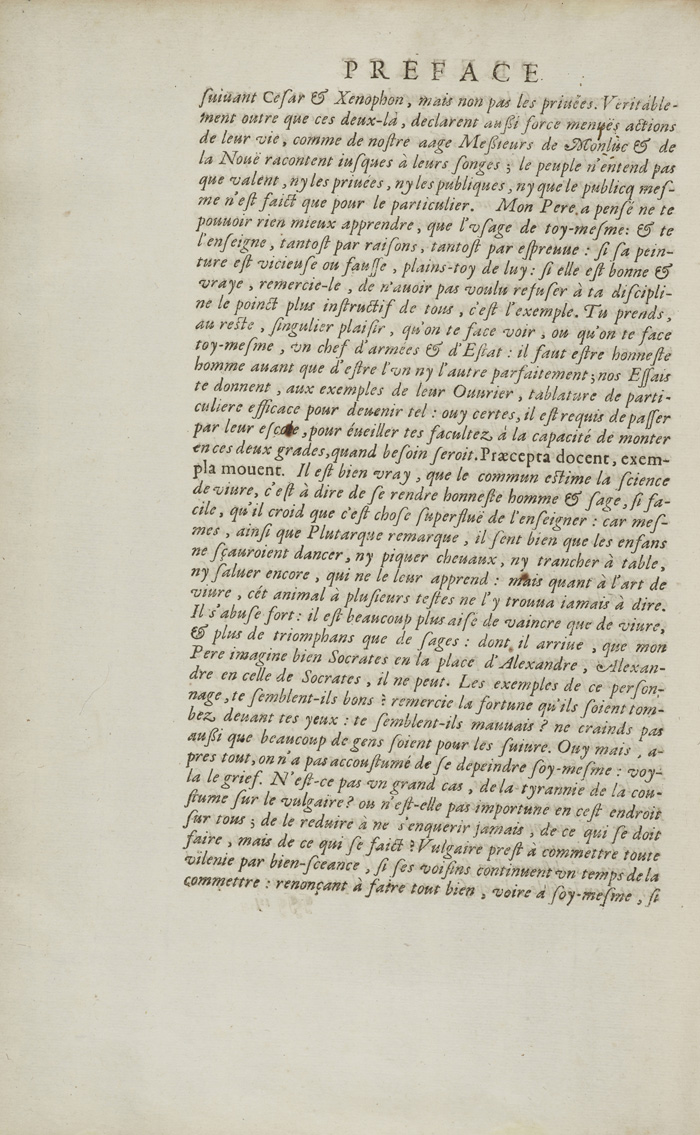 PREFACE
ſuiuant Ceſar & Xenophon, mais non pas les priuées. Veritable-
ment outre que ces deux-là, declarent außi force menuës actions
de leur vie, comme de noſtre aage Meßieurs de Monluc & de
la Nouë racontent iuſques à leurs ſonges ; le peuple n'entend pas
que valent, ny les priuées, ny les publiques, ny que le publicq meſ-
me n'eſt faict que pour le particulier. Mon Pere a pensé ne te
pouuoir rien mieux apprendre, que l'vſage de toy-meſme: & te
l'enſeigne, tantoſt par raiſons, tantoſt par eſpreuue : ſi ſa pein-
ture eſt vicieuſe ou fauſſe, plains-toy de luy: ſi elle eſt bonne &
vraye, remercie-le, de n'auoir pas voulu refuſer à ta diſcipli-
ne le poinct plus inſtructif de tous, c'eſt l'exemple. Tu prends,
au reſte, ſingulier plaiſir, qu'on te face voir, ou qu'on te face
toy-meſme, vn chef d'armées & d'Eſtat : il faut eſtre honneſte
homme auant que d'eſtre l'vn ny l'autre parfaitement; nos Eſſais
te donnent, aux exemples de leur Ouurier, tablature de parti-
culiere efficace pour deuenir tel : ouy certes, il eſt requis de paſſer
par leur eſcole, pour éueiller tes facultez, à la capacité de monter
en ces deux grades, quand beſoin ſeroit. Præcepta docent, exem-
pla mouent. Il eſt bien vray, que le commun eſtime la ſcience
de viure, c'eſt à dire de ſe rendre honneſte homme & ſage, ſi fa-
cile, qu'il croid que c'eſt choſe ſuperfluë de l'enſeigner : car meſ-
mes, ainſi que Plutarque remarque, il ſent bien que les enfans
ne ſçauroient dancer, ny piquer cheuaux, ny trancher à table,
ny ſaluer encore, qui ne le leur apprend : mais quant à l'art de
viure, cét animal à pluſieurs teſtes ne l'y trouua iamais à dire.
Il s'abuſe fort : il eſt beaucoup plus aiſé de vaincre que de viure,
& plus de triomphans que de ſages : dont il arriue, que mon
Pere imagine bien Socrates en la place d'Alexandre, Alexan-
dre en celle de Socrates, il ne peut. Les exemples de ce perſon-
nage, te ſemblent-ils bons ? remercie la fortune qu'ils ſoient tom-
bez deuant tes yeux : te ſemblent-ils mauuais ? ne crainds pas
außi que beaucoup de gens ſoient pour les ſuiure. Ouy mais, a-
pres tout, on n'a pas accouſtumé de ſe depeindre ſoy-meſme : voy-
la le grief. N'eſt-ce pas vn grand cas, de la tyrannie de la cou-
ſtume ſur le vulgaire ? ou n'eſt-elle pas importune en ceſt endroit
ſur tous ; de le reduire à ne s'enquerir jamais, de ce qui ſe doit
faire, mais de ce qui ſe faict ? Vulgaire preſt à commettre toute
vilenie par bien-ſceance, ſi ſes voiſins continuent vn temps de la
commettre : renonçant à faire tout bien, voire à ſoy-meſme, ſi